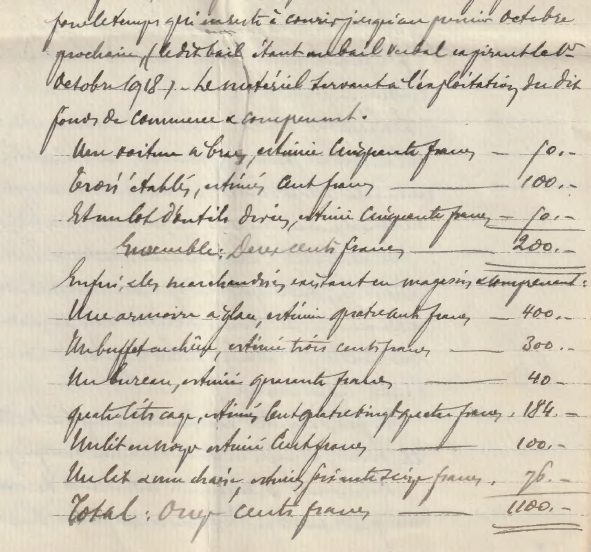 pour le temps qui en reste à courir jusqu'au premier Octobre
prochain, (le dit bail étant un bail verbal expirant le 1er
Octobre 1918) - Le matériel servant à l'exploitation du dit
fonds de commerce & comprenant.
Une voiture à bras, estimée Cinquante francs — 50.-
Trois établis, estimés Cent francs — 100.-
Et un lot d'outils divers, estimé Cinquante francs — 50.-
Ensemble: Deux cents francs — 200.-
Enfin; les marchandises existant en magasin & comprenant:
Une armoire à glace, estimée quatre cents francs — 400.-
Un buffet en chêne, estimé trois cents francs — 300.-
Un bureau, estimé quarante francs — 40 -
quatre lits cage, estimés Cent quatre vingt quatre francs. 184.-
Un lit en noyer estimé Cent francs — 100.-
Un lit & une chaise, estimés soixante seize francs. 76.-
Total: Onze cents francs — 1100.-